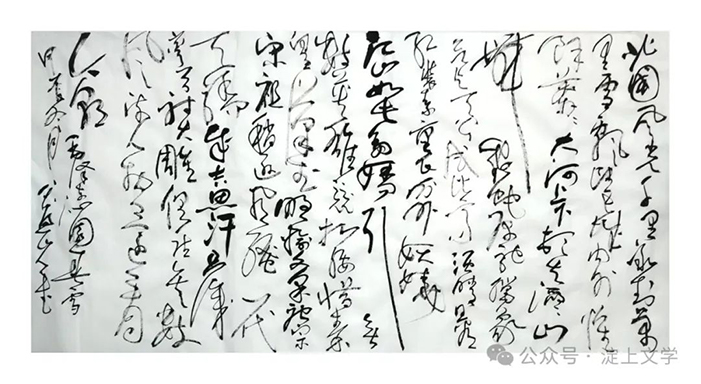 北国风光千里冰封万
里雪飘望长城内外惟
馀莽莽大河上下顿失滔滔山
舞银蛇原驰蜡象
欲与天公试比高须晴日看
红装素裹分外妖娆
江山如此多娇引无
数英雄竞折腰惜秦
皇汉武略输文采唐宗
宋祖稍逊风骚一代
天骄成吉思汗只识
弯弓射大雕俱往矣数
风流人物还看
今朝 毛泽东沁园春雪
公众号·淀上文学